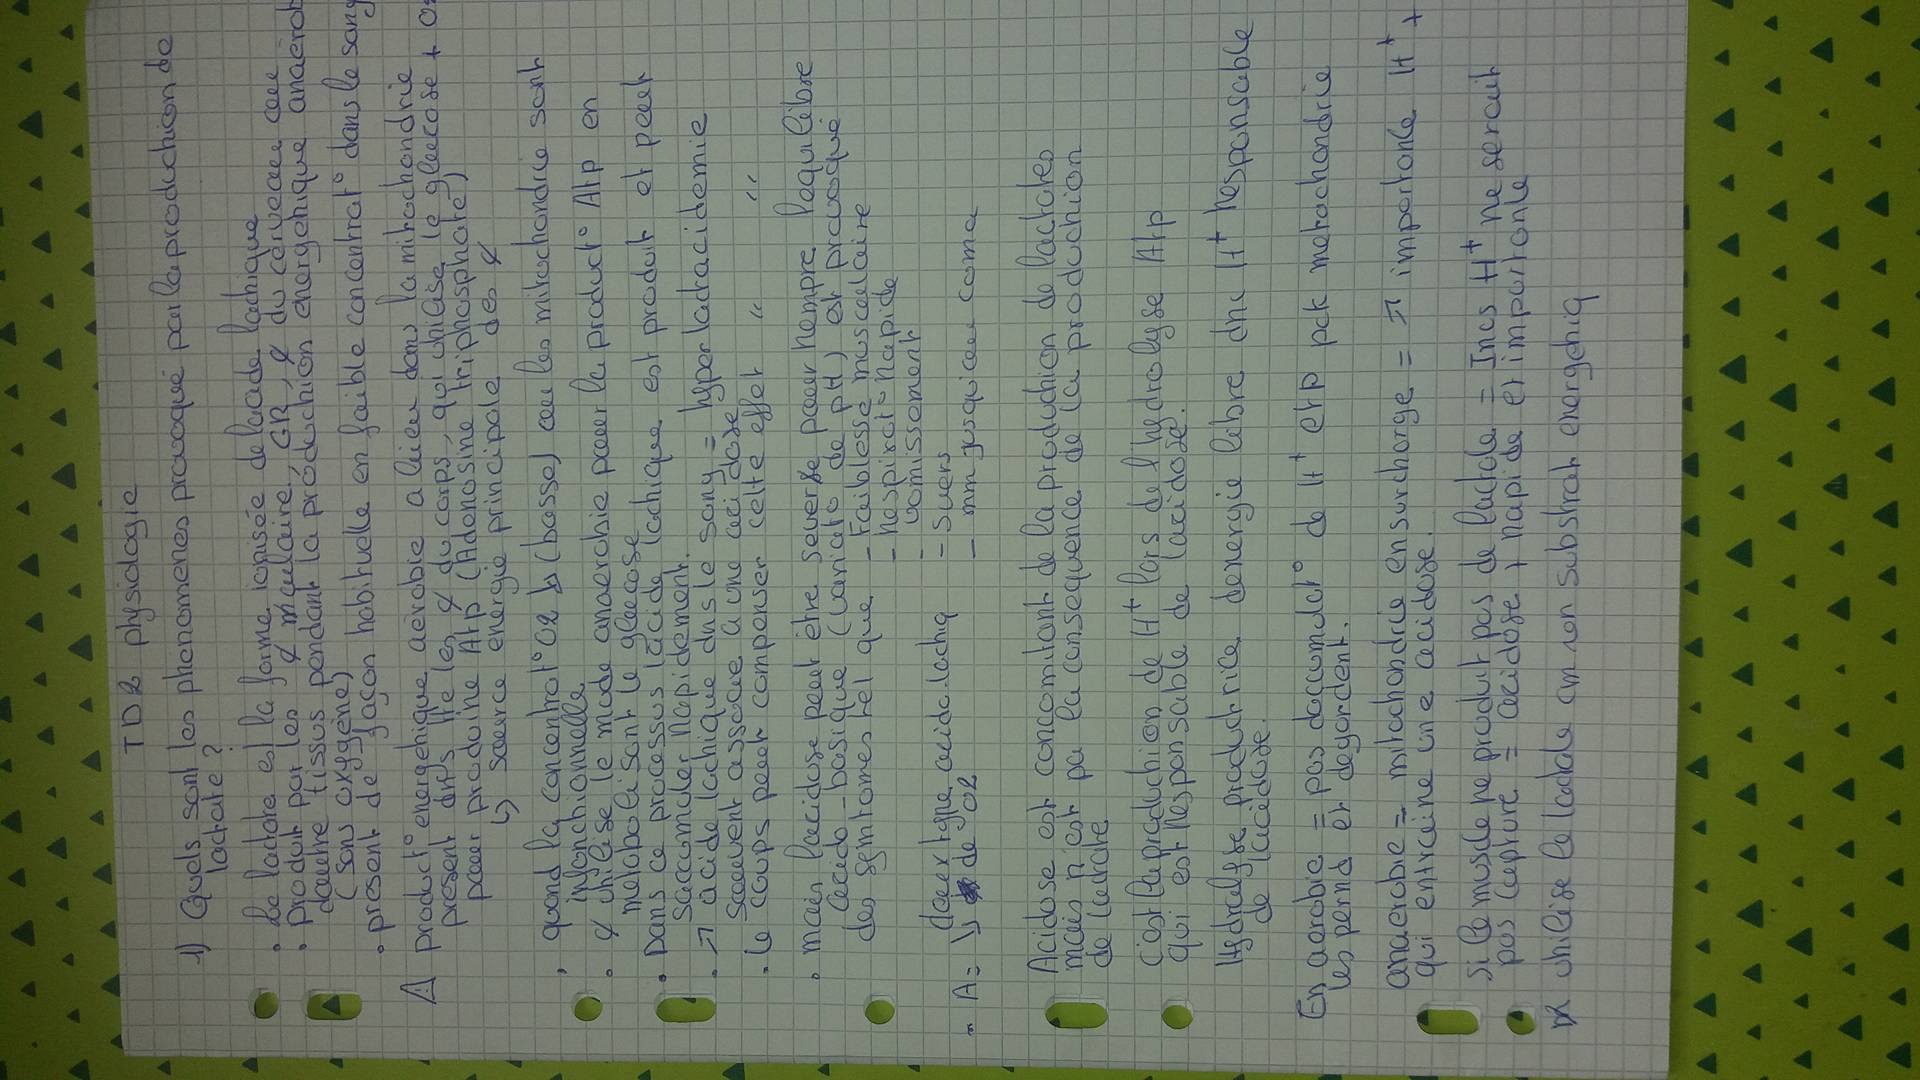 TD2 physiologie
1) Quels sont les phenomenes provoqué par la production de
lactate ?
• Le lactate est la forme ionisée de lacide lactique
• produit par les ¢ musculaire, GR, ¢ du cerveau ou
dautre tissus pendant la production energetique anaérob
(sans oxygène)
• present de façon habituelle en faible concentrat° dans le sang
A product° energetique aérobie a lieu dans la mitochondrie
present dns tte les ¢ du corps, qui utilise le glucose + O2
pour produire Atp (Adenosine triphosphate)
↳ source energie principale des ¢
• quand la concentrat° O2 ↘ (basse) ou les mitochondrie sont
infonctionnelle
• ¢ utilise le mode anaerobie pour la product° Atp en
metabolisant le glucose
• Dans ce processus lacide lactique est produit et peut
saccumuler rapidement.
• ↗ acide lactique dns le sang = hyperlactacidemie
souvent associée a une acidose
• le corps peut compenser cette effet " "
• mais lacidose peut être severe pour rempre lequilibre
acido-basique (variat° de pH) et provoqué
des symtomes tel que - Faiblesse musculaire
- respirat° rapide
- vomissement
- Suers
- mm jusqu'au coma
deux type acido.lactiq
- A = ↘ de O2
Acidose est concomitant de la production de lactates
mais n'est pa la consequence de la production
de lactate
C'est la production de H+ lors de l'hydrolyse Atp
qui est responsable de lacidose.
Hydrolyse productrice denergie libre dnc H+ responsable
de lacidose.
En aerobie = pas daccumulat° de H+ et P pck metochondrie
les prend et degordent.
anaerobie = mitochondrie en surcharge = ↗ importante H+ +
qui entraine une acidose.
Si le muscle ne produit pas de lactate = Ines H+ ne serait
pas capturé = acidose + rapide et importante
utilise le lactate cm son substrat energetiq